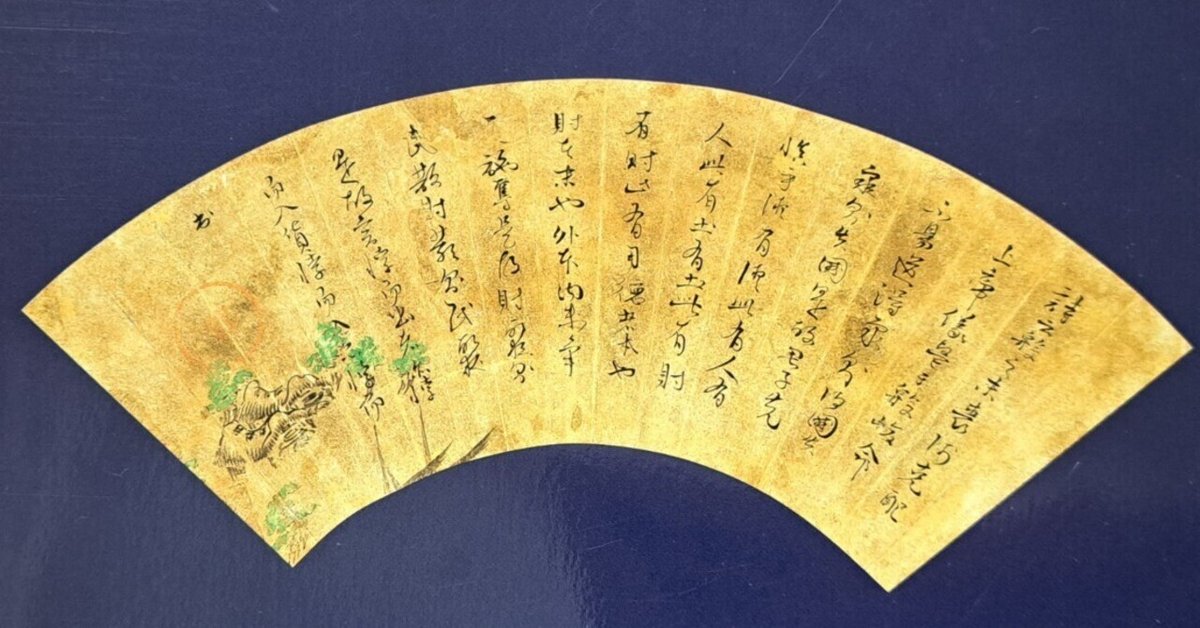 詩云殷之未喪師克配
上帝儀監于殷峻命
不易道得衆則得國失
衆則失國是故君子先
慎乎德有德此有人有
人此有土有土此有財
有財此有用德者本也
財者末也外本内末爭
民施奪是故財聚則
民散財散則民聚
是故言悖而出者亦悖
而入貨悖而入者亦悖而
出